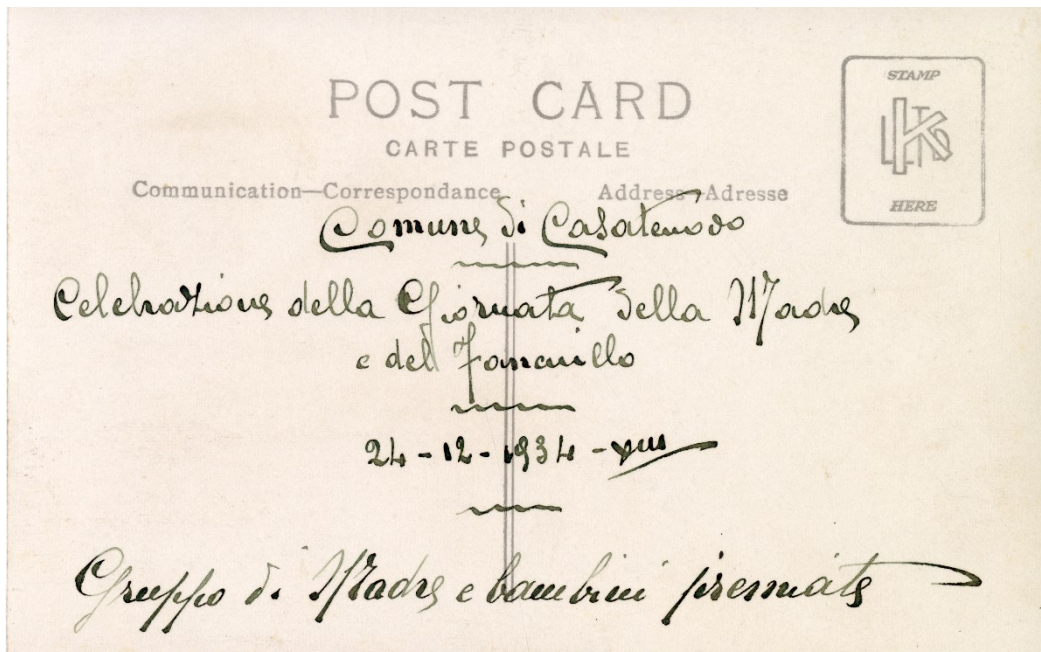 POST CARD
CARTE POSTALE
STAMP
HERE
Communication—Correspondance
Address—Adresse
Comune di Casatenovo
Celebrazione della Giornata della Madre
e del Fanciullo
24-12-1934-XIII
Gruppo di Madre e bambini premiate